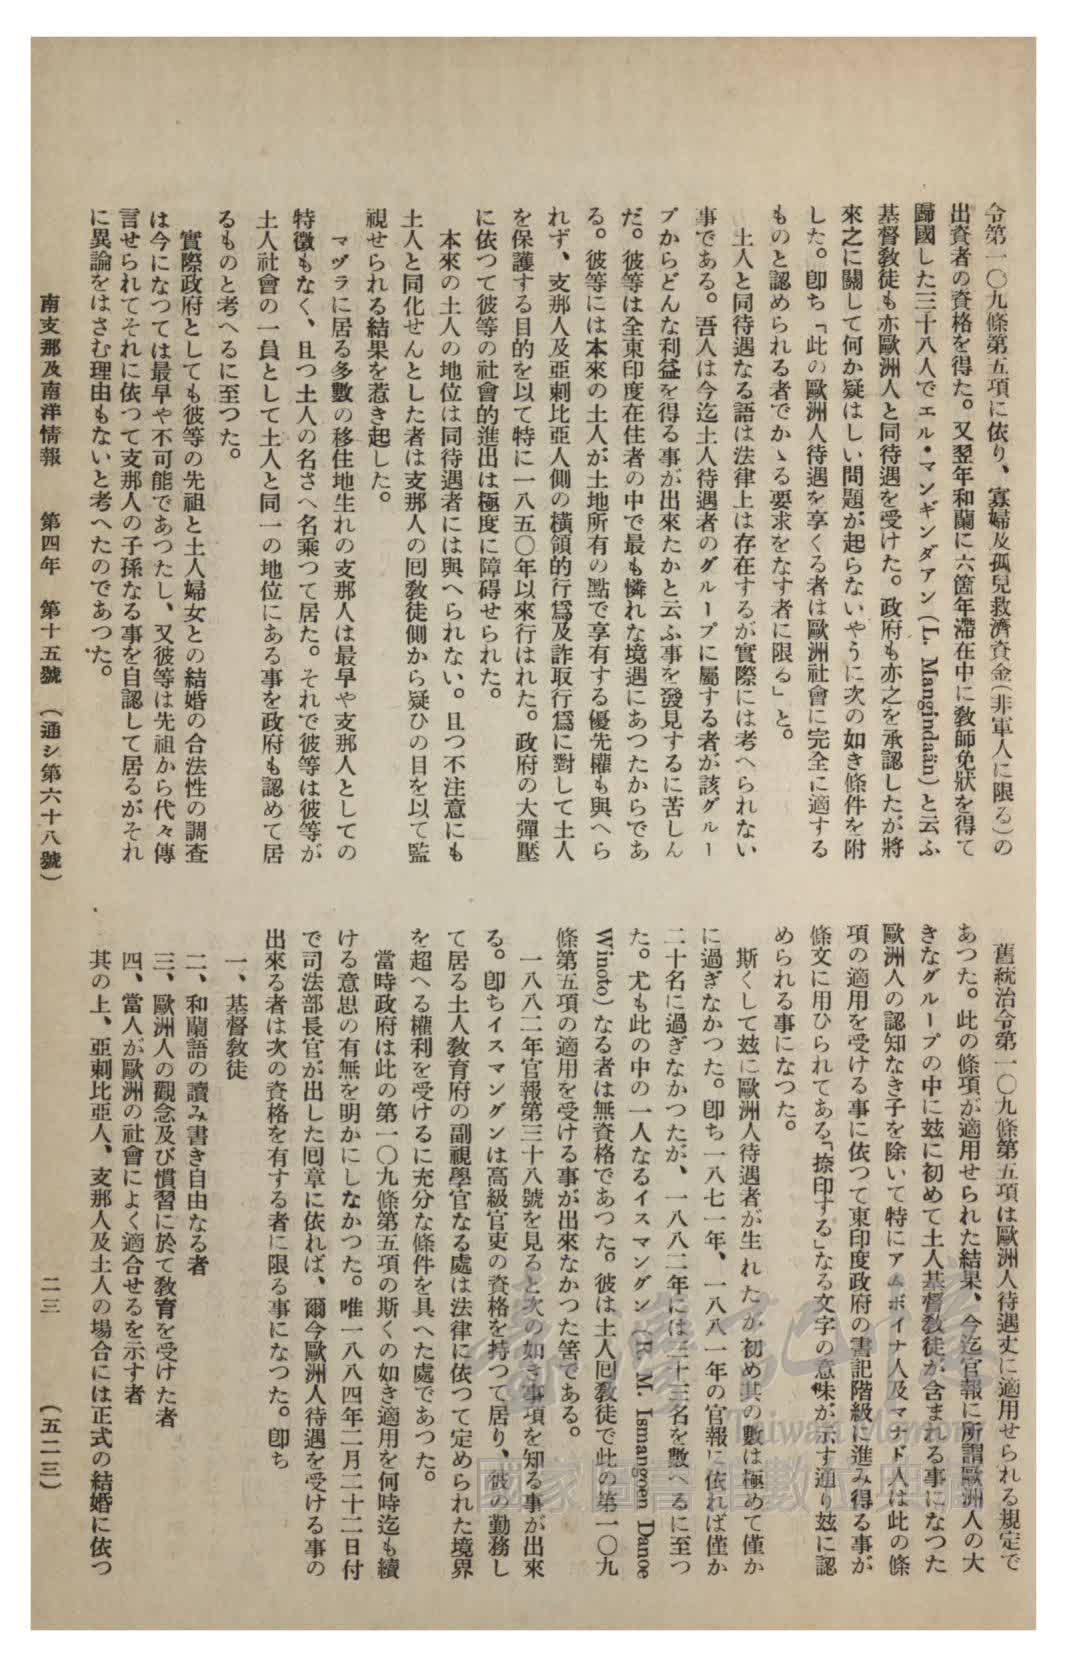 令第一〇九條第五項に依り、寡婦及孤兒救濟資金(非軍人に限る)の
出資者の資格を得た。又翌年和蘭に六箇年滯在中に敎師免狀を得て
歸國した三十八人でエル・マンギンダアン(L. Mangindaän)と云ふ
基督敎徒も亦歐洲人と同待遇を受けた。政府も亦之を承認したが將
來之に關して何か疑はしい問題が起らないやうに次の如き條件を附
した。卽ち「此の歐洲人待遇を享くる者は歐洲社會に完全に適する
ものと認められる者でかゝる要求をなす者に限る」と。
土人と同待遇なる語は法律上は存在するが實際には考へられない
事である。吾人は今迄土人待遇者のグループに屬する者が該グルー
プからどんな利益を得る事が出來たかと云ふ事を發見するに苦しん
だ。彼等は全東印度在住者の中で最も憐れな境遇にあつたからであ
る。彼等には本來の土人が土地所有の點で享有する優先權も與へら
れず、支那人及亞剌比亞人側の橫領的行爲及詐取行爲に對して土人
を保護する目的を以て特に一八五〇年以來行はれた。政府の大彈壓
に依つて彼等の社會的進出は極度に障碍せられた。
本來の土人の地位は同待遇者には與へられない。且つ不注意にも
土人と同化せんとした者は支那人の囘敎徒側から疑ひの目を以て監
視せられる結果を惹き起した。
マヅラに居る多數の移住地生れの支那人は最早や支那人としての
特徵もなく、且つ土人の名さへ名乘つて居た。それで彼等は彼等が
土人社會の一員として土人と同一の地位にある事を政府も認めて居
るものと考へるに至つた。
實際政府としても彼等の先祖と土人婦女との結婚の合法性の調査
は今になつては最早や不可能であつたし、又彼等は先祖から代々傳
言せられてそれに依つて支那人の子孫なる事を自認して居るがそれ
に異論をはさむ理由もないと考へたのであつた。
舊統治令第一〇九條第五項は歐洲人待遇丈に適用せられる規定で
あつた。此の條項が適用せられた結果、今迄官報に所謂歐洲人の大
きなグループの中に玆に初めて土人基督敎徒が含まれる事になつた
歐洲人の認知なき子を除いて特にアムボイナ人及マナド人は此の條
項の適用を受ける事に依つて東印度政府の書記階級に進み得る事が
條文に用ひられてある「捺印する」なる文字の意味が示す通り玆に認
められる事になつた。
斯くして玆に歐洲人待遇者が生れたが初め其の數は極めて僅か
に過ぎなかつた。卽ち一八七一年、一八八一年の官報に依れば僅か
二十名に過ぎなかつたが、一八八二年には三十三名を數へるに至つ
た。尤も此の中の一人なるイスマングン (R. M. Ismangoen Danoe
Winoto) なる者は無資格であつた。彼は土人囘敎徒で此の第一〇九
條第五項の適用を受ける事が出來なかつた筈である。
一八八二年官報第三十八號を見ると次の如き事項を知る事が出來
る。卽ちイスマングンは高級官吏の資格を持つて居り、彼の勤務し
て居る土人敎育府の副視學官なる處は法律に依つて定められた境界
を超へる權利を受けるに充分な條件を具へた處であつた。
當時政府は此の第一〇九條第五項の斯くの如き適用を何時迄も續
ける意思の有無を明かにしなかつた。唯一八八四年二月二十二日付
で司法部長官が出した囘章に依れば、爾今歐洲人待遇を受ける事の
出來る者は次の資格を有する者に限る事になつた。卽ち
一、基督敎徒
二、和蘭語の讀み書き自由なる者
三、歐洲人の觀念及び慣習に於て敎育を受けた者
四、當人が歐洲の社會によく適合せるを示す者
其の上、亞剌比亞人、支那人及土人の場合には正式の結婚に依つ
南支那及南洋情報 第四年 第十五號 (通シ第六十八號) 二三 (五二三)
臺灣記憶
Taiwan Memory
國家圖書館數位典藏